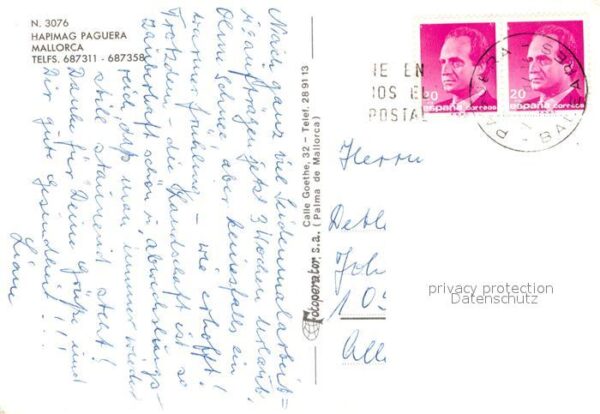 N. 3076
HAPIMAG PAGUERA
MALLORCA
TELFS. 687311 - 687358
Nach ganz viel Seidenmalarbeit =
aufträgen jetzt 3 Wochen Urlaub.
Ohne Schnee, aber keinesfalls ein
warmer Frühling – wie erhofft!
Trotzdem die Landschaft ist so
zauberhaft schön u. abwechslungs-
reich daß man immer wieder
still staunend steht!
Danke für Deine Grüße und
Dir gute Gesundheit!!!
Liane
Fotoperator, s.a.
Calle Goethe, 32 - Telef. 28 91 13
(Palma de Mallorca)
IE EN
OS EL
POSTAL
20
españa correos
20
españa correos
Herrn
Detl
Joh
105
Alle
privacy protection
Datenschutz